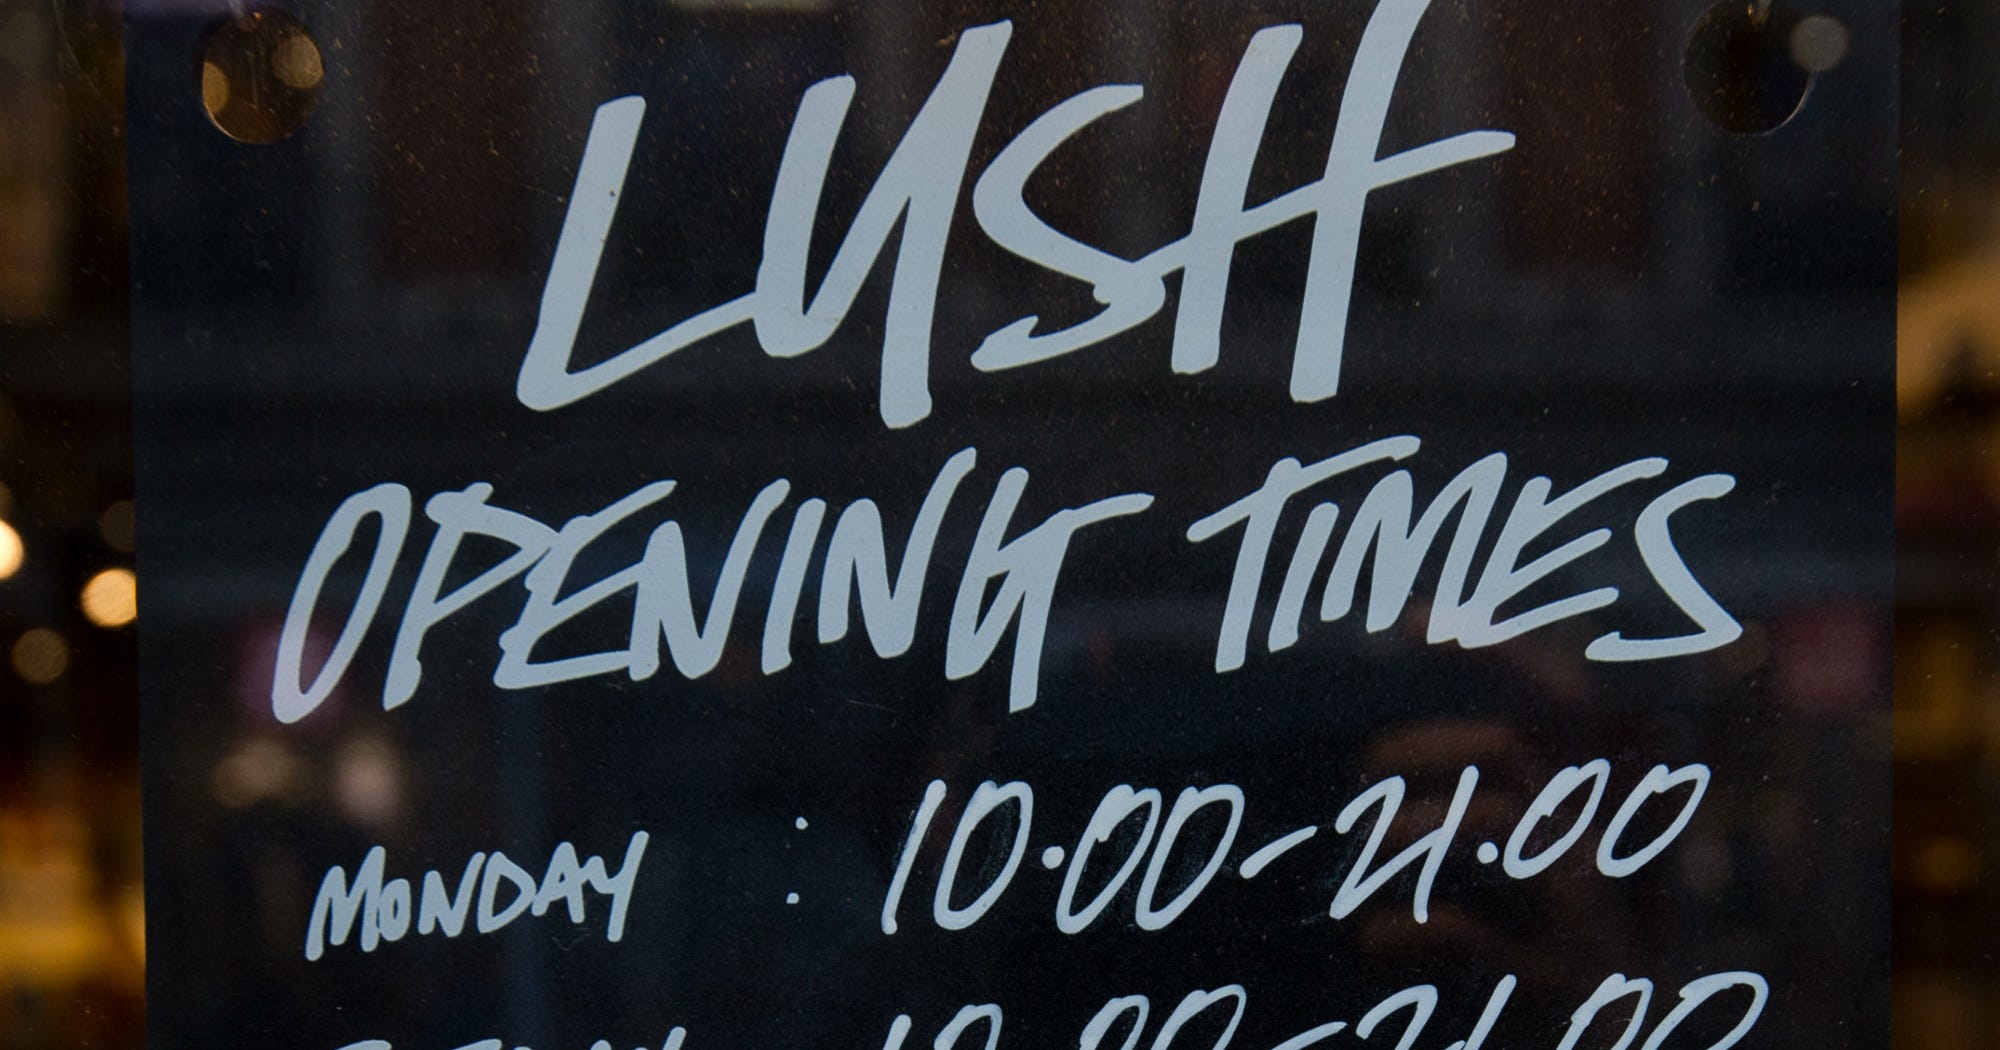 LUSH
OPENING TIMES
MONDAY : 10.00-21.00